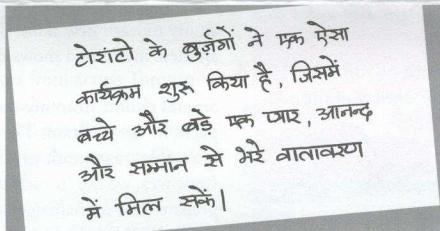 टोरांटो के बुर्ज़गों ने एक ऐसा
कार्यक्रम शुरू किया है, जिसमें
बच्चे और बड़े एक प्यार, आनन्द
और सम्मान से भरे वातावरण
में मिल सकें।